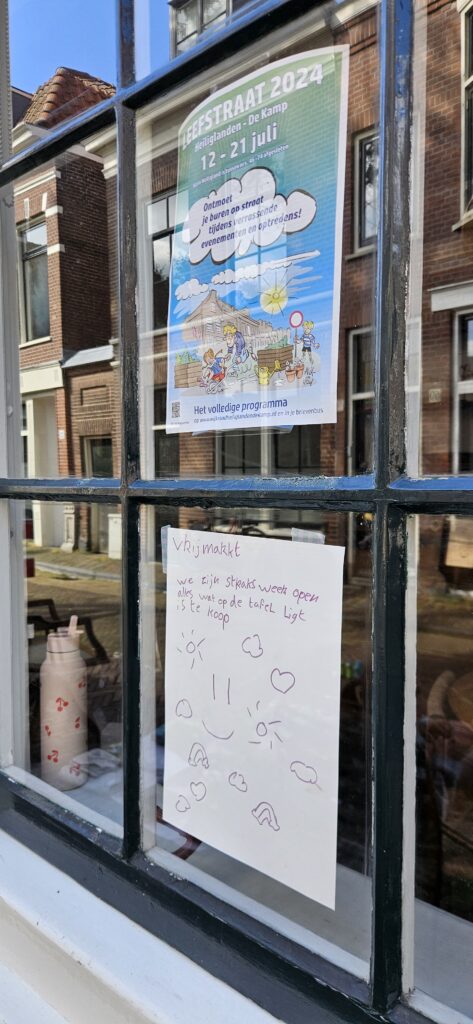 LEEFSTRAAT 2024
Heiliglanden - De Kamp
12 - 21 juli
Ontmoet
je buren op straat
tijdens verrassende
evenementen en optredens!
Het volledige programma
en in je brievenbus
Vrijmarkt
we zijn straks week open
alles wat op de tafel ligt
is te koop